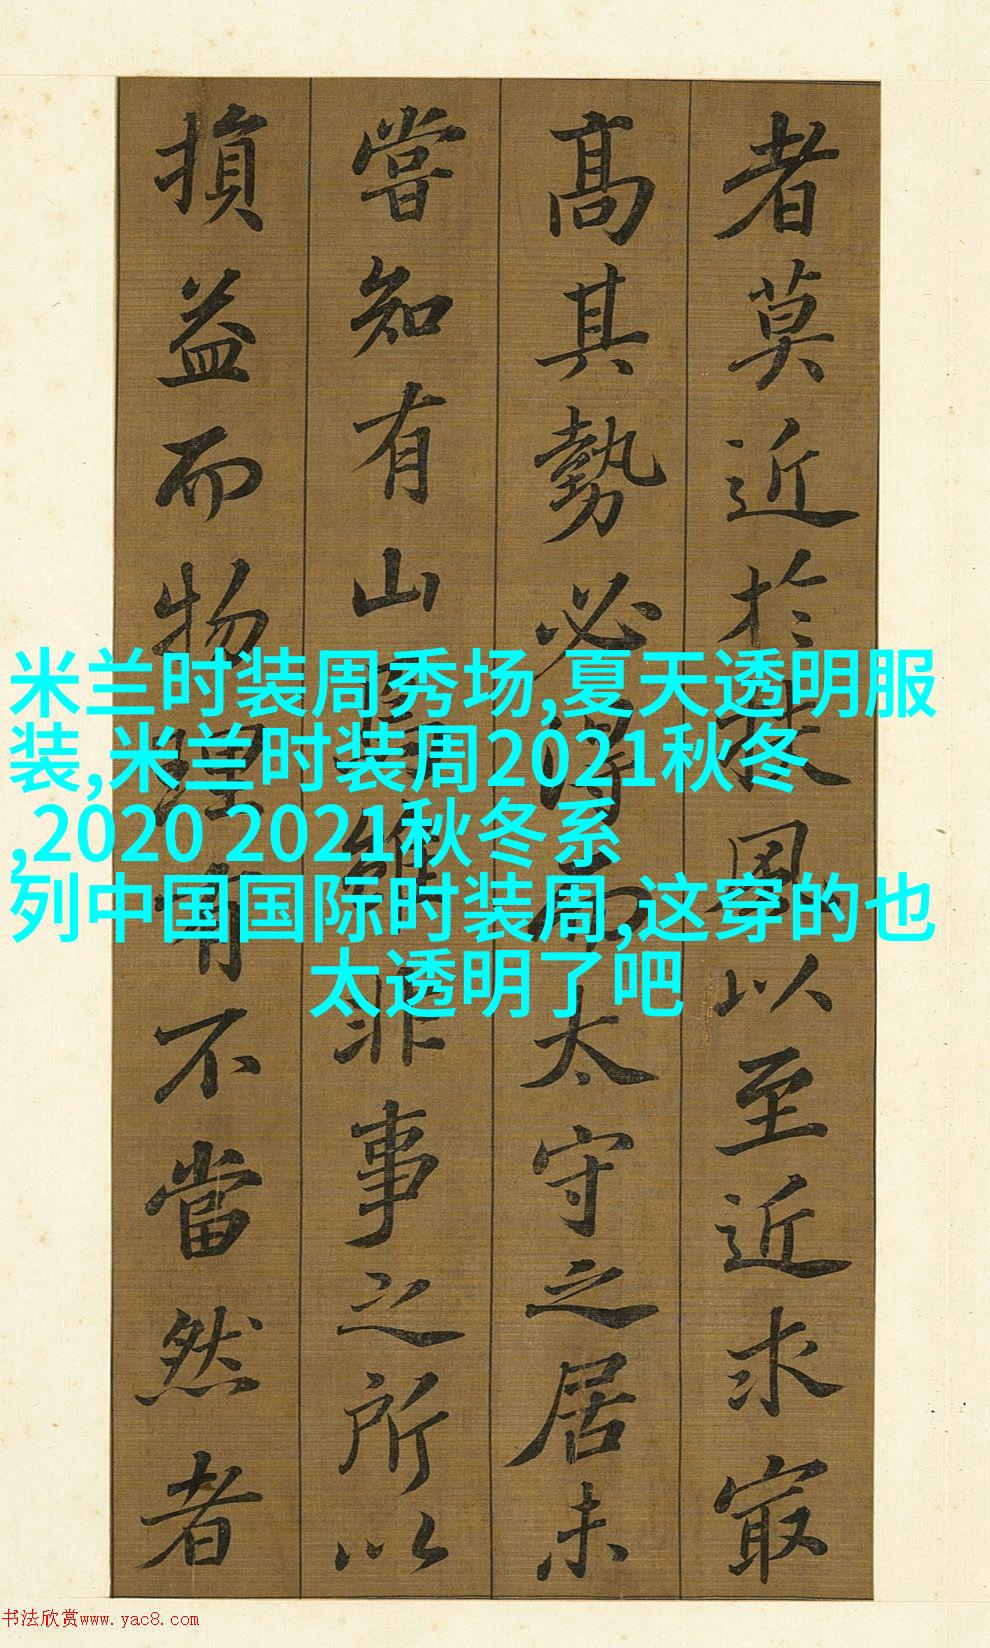 者莫近於扶風以至近求最
高其勢必得而太守之居未
嘗知有山焉雖非事之所以
損益而物理有不當然者
米兰时装周秀场,夏天透明服
装,米兰时装周2021秋冬
,2020 2021秋冬系
列中国国际时装周,这穿的也
太透明了吧
书法欣赏www.yac8.com